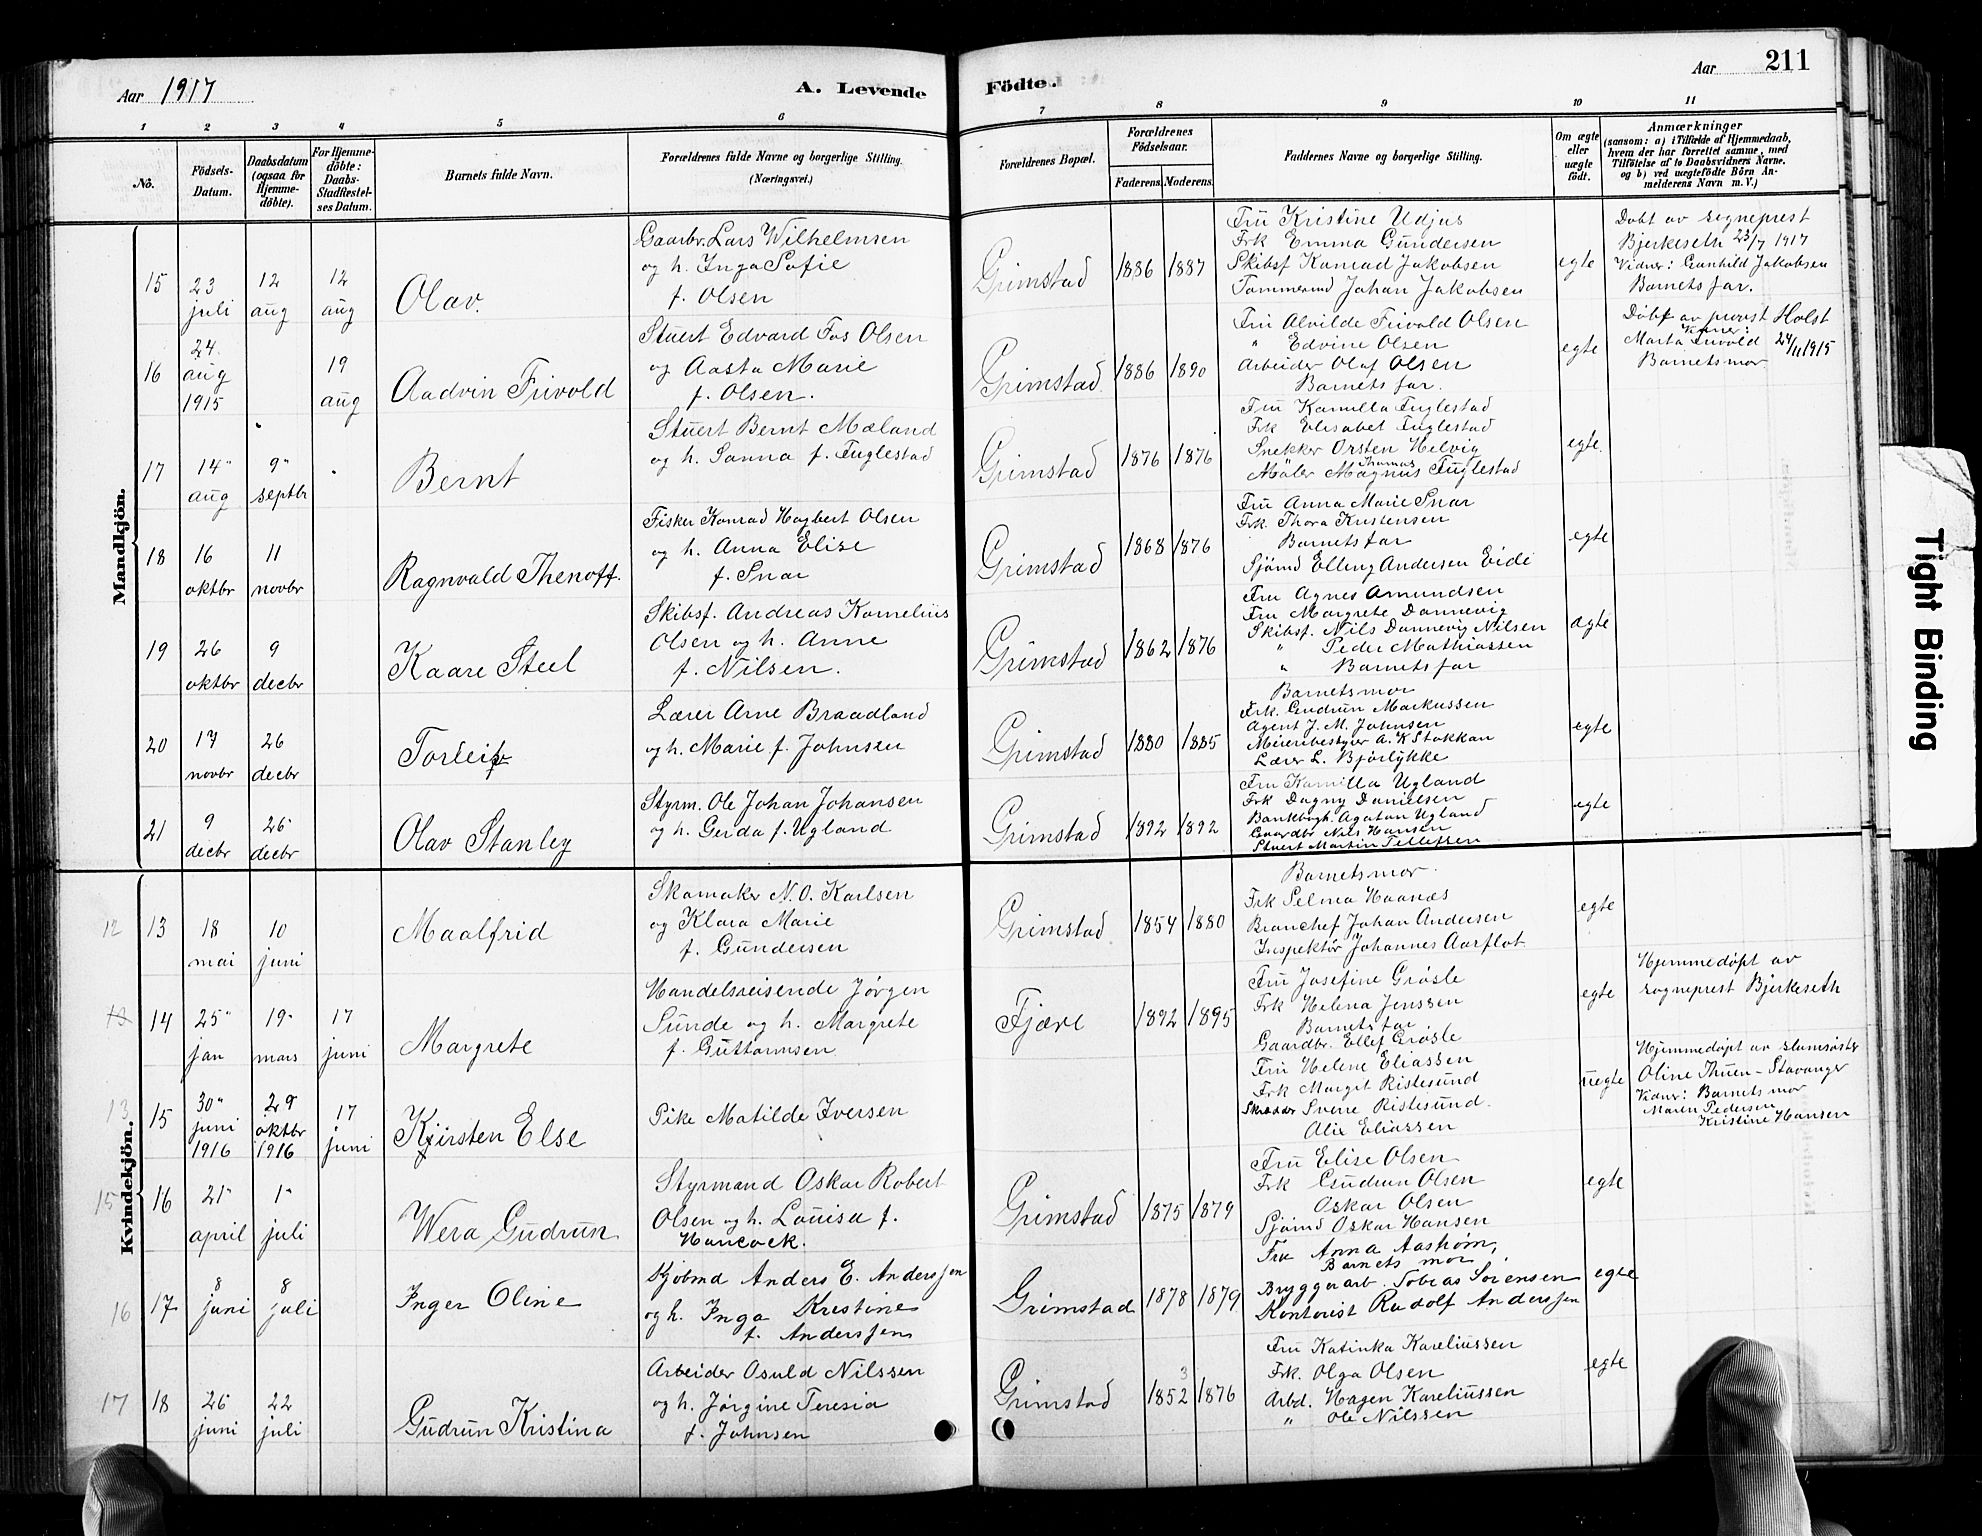 Aar 1917
A. Levende
Födte.
Aar
211
1
2
3
4
5
6
7
8
9
10
11
No.
Födsels-
Datum.
Daabsdatum
(ogsaa for
Hjemme-
döbte).
For Hjemme-
döbte:
Daabs-
Stadfæstel-
ses Datum.
Barnets fulde Navn.
Forældrenes fulde Navne og borgerlige Stilling.
(Næringsvei.)
Forældrenes Bopæl.
Forældrenes
Födselsaar.
Faderens.
Moderens.
Faddernes Navne og borgerlige Stilling.
Om ægte
eller
uægte
födt.
Anmærkninger
(saasom: a) i Tilfælde af Hjemmedaab,
hvem der har forrettet samme, med
Tilföielse af to Daabsvidners Navne.
og b) ved uægtefödte Börn An-
melderens Navn m. V.)
Mandkjön.
15
23
juli
12
aug
12
aug
Olav.
Gaarbr. Lars Wilhelmsen
og h. Inga Sofie
f. Olsen
Grimstad
1886
1887
Fru Kristine Udjus
Frk Emma Gundersen
Skibsf Konrad Jakobsen
Tømmermd Johan Jakobsen
egte
Døbt av sogneprest
Bjerkeseth 23/7 1917
Vidner: Gunhild Jakobsen
Barnets far.
16
24
aug
1915
19
aug
Aadvin Frivold
Stuert Edvard Fos Olsen
og Aasta Marie
f. Olsen.
Grimstad
1886
1890
Fru Alvilde Frivold Olsen
" Edvine Olsen
Arbeider Olaf Olsen
Barnets far.
egte
Døbt av provst Holst
Vidner:
Marta Frivold 24/11 1915
Barnets mor
17
14
aug
9
septbr
Bernt
Stuert Bernt Mæland
og h. Sanna f. Fuglestad
Grimstad
1876
1876
Fru Kamilla Fuglestad
Frk Elisabet Fuglestad
Snekker Orsten Helvig
Thomas
Maler Magnus Fuglestad
egte.
18
16
oktbr
11
novbr
Ragnvald Thenoff.
Fisker Konrad Hagbert Olsen
og h. Anna Elise
f. Snar
Grimstad
1868
1876
Fru Anna Marie Snar
Frk. Thora Kristensen
Barnets far
Sjømd Elling Andersen Eide
egte
19
26
oktbr
9
decbr
Kaare Steel
Skibsf. Andreas Kornelius
Olsen og h. Anne
f. Nilsen.
Grimstad
1862
1876
Fru Agnes Amundsen
Fru Margrete Dannevig
Skibsf. Nils Dannevig Nilsen
" Peder Mathiassen
" Barnets far
ægte
20
17
novbr
26
decbr
Torleif
Lærer Arne Braadland
og h. Marie f. Johnsen
Grimstad
1880
1885
Barnets mor
Frk. Gudrun Markussen
Agent J. M. Johnsen
Meieribestyrer A. K Stokkan
Lærer L. Bjørlykke
egte
21
9
decbr
26
decbr
Olav Stanley
Styrm. Ole Johan Johansen
og h. Gerda f. Ugland
Grimstad
1892
1892
Fru Kamilla Ugland
Frk Dagny Danielsen
Bankbogh. Agaton Ugland
Gaardbr Nils Hansen
Stuert Martin Tellefsen
egte
Kvindekjön.
12
13
18
mai
10
juni
Maalfrid
Skomaker N. O. Karlsen
og Klara Marie
f. Gundersen
Grimstad
1854
1880
Barnets mor.
Frk Selma Haanes
Branchef Johan Andersen
Inspektør Johannes Aarflot
egte
13
14
25
jan
19
mars
17
juni
Margrete
Handelsreisende Jørgen
Sunde og h. Margrete
f. Guttormsen
Fjære
1892
1895
Fru Josefine Grøsle
Frk Helena Jenssen
Barnets far
Gaardbr. Ellef Grøsle
egte
Hjemmedøpt av
sogneprest Bjerkeseth
13
15
30
juni
1916
29
oktbr
1916
17
juni
Kjirsten Else
Pike Matilde Iversen
Fru Helene Eliassen
Frk Margit Ristesund
Skrædder Sverre Ristesund.
Alie Eliassen
uegte
Hjemmedøpt av slumsøster
Oline Thuen - Stavanger
Vidnr: Barnets mor
Maren Pedersen
Kristine Hansen
15
16
21
april
1
juli
Wera Gudrun
Styrmand Oskar Robert
Olsen og h. Louisa f.
Hancock.
Grimstad
1875
1879
Fru Elise Olsen
Frk Gudrun Olsen
Oskar Olsen
Sjømd Oskar Hansen
egte
16
17
8
juni
8
juli
Inger Oline
Kjøbmd Anders E. Anderssen
og h. Inga Kristine
f. Anderssen
Grimstad
1878
1879
Fru Anna Aashøm,
Barnets mor
Bryggerarb. Tobias Sørensen
Kontorist Rudolf Anderssen
egte
17
18
26
juni
22
juli
Gudrun Kristina
Arbeider Osuld Nilssen
og h. Jørgine Teresia
f. Johnsen
Grimstad
3
1852
1876
Fru Katinka Kareliussen
Frk. Olga Olsen
Arbd. Hagen Kareliussen
" Ole Nilssen
egte
Tight Binding